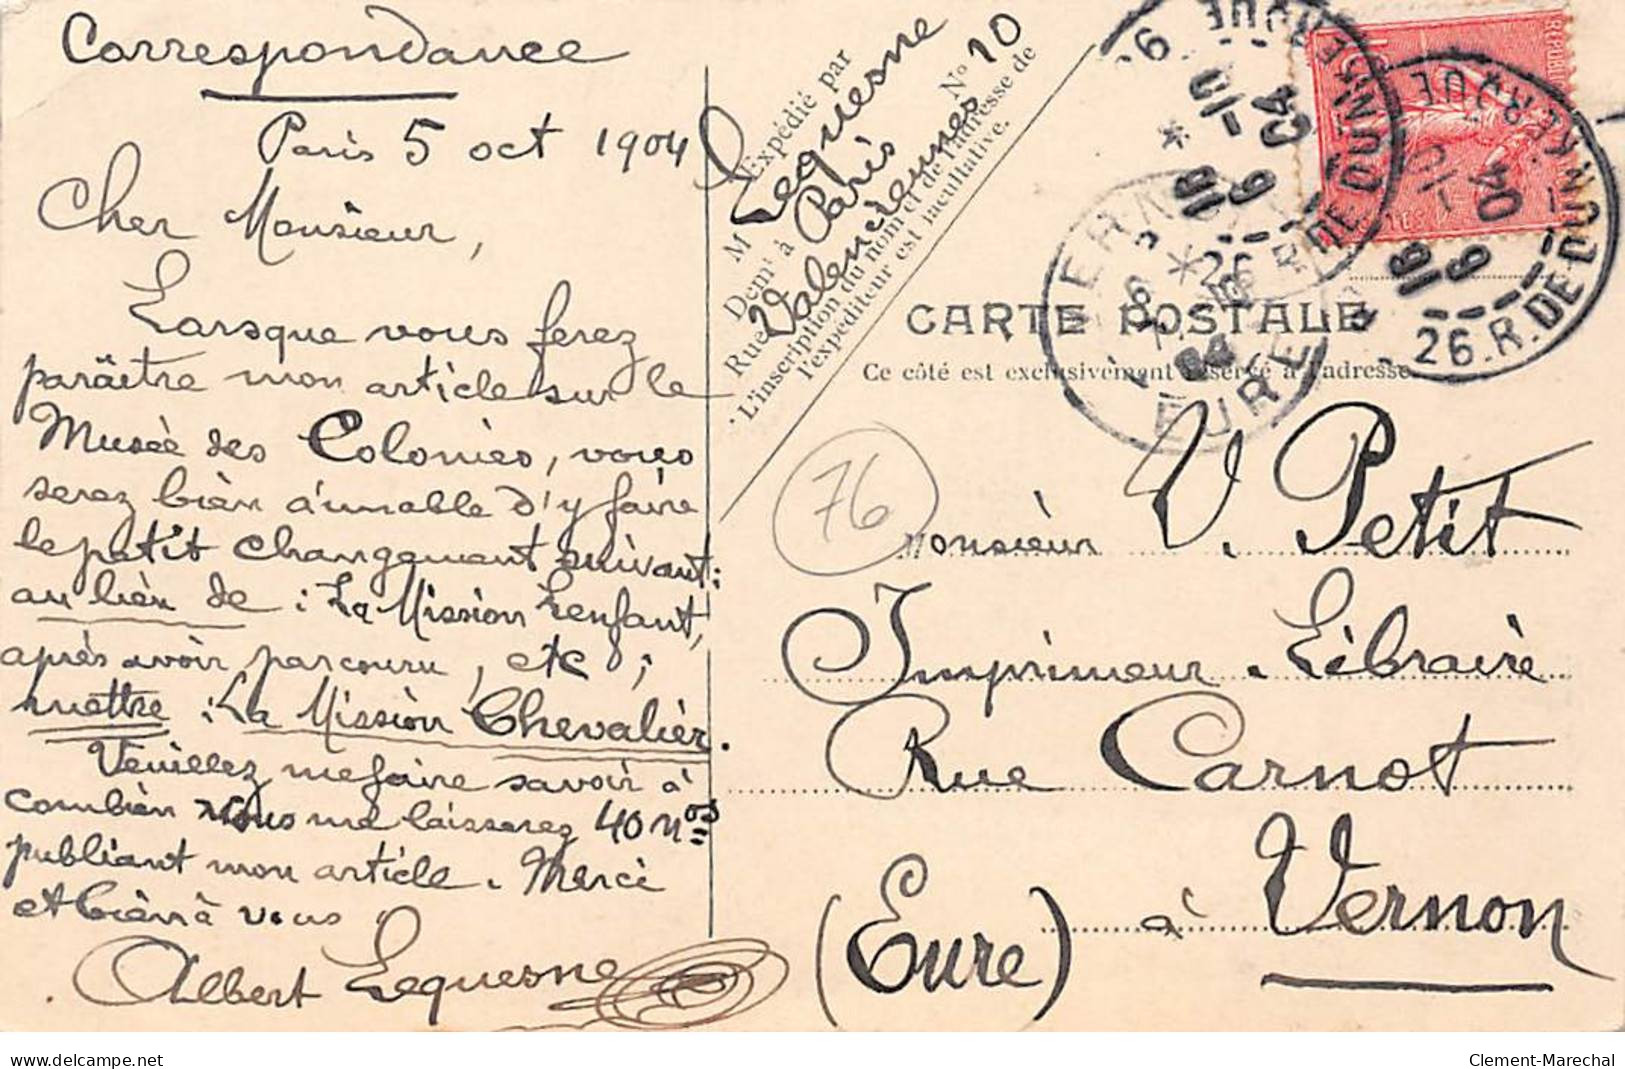 Correspondance
Paris 5 oct 1904
Cher Monsieur,
Lorsque vous ferez
paraître mon article sur le
Musée des Colonies, vous
serez bien aimable d'y faire
le petit changement suivant:
au lieu de : La Mission Lenfant,
après avoir parcouru, etc ;
mettre : La Mission Chevalier.
Veuillez me faire savoir à
combien vous me laisserez 40 nos
publiant mon article. Merci
et bien à vous.
Albert Lequesne
Expédié par
M Lequesne
Demt à Paris
Rue Valenciennes No 10
L'inscription du nom et de l'adresse de
l'expéditeur est facultative.
REPUBLI
26 R. DE DUNKERQUE
18 10
6 - 10
04
26.R.DE DUNKERQUE
18 10
6 - 10
04
VERNON
EURE
CARTE POSTALE
Ce côté est exclusivement réservé à l'adresse.
76
Monsieur V. Petit
Imprimeur. Libraire
Rue Carnot
à Vernon
(Eure)
delcampe.net
Clement-Marechal